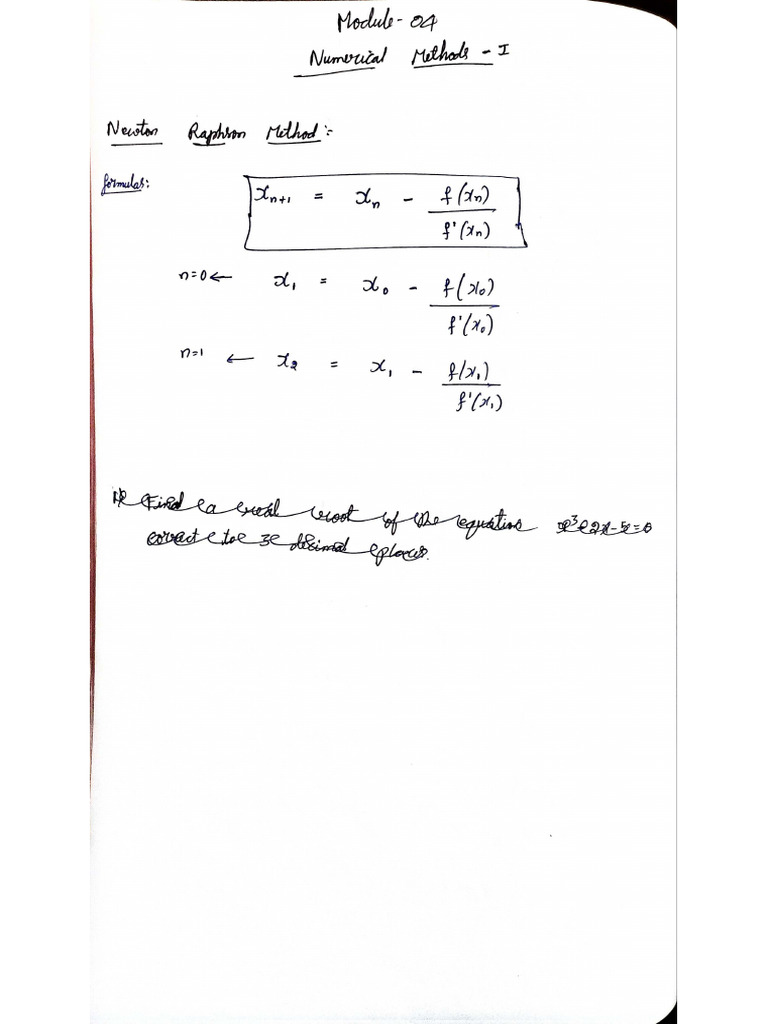 Module - 04
Numerical Methods - I
Newton Raphson Method :-
formulas:
x_{n+1} = x_n - f(x_n) / f'(x_n)
n=0 ← x_1 = x_0 - f(x_0) / f'(x_0)
n=1 ← x_2 = x_1 - f(x_1) / f'(x_1)
Find a real root of the equation x^3 2x-5=0
correct to 3 decimal places.